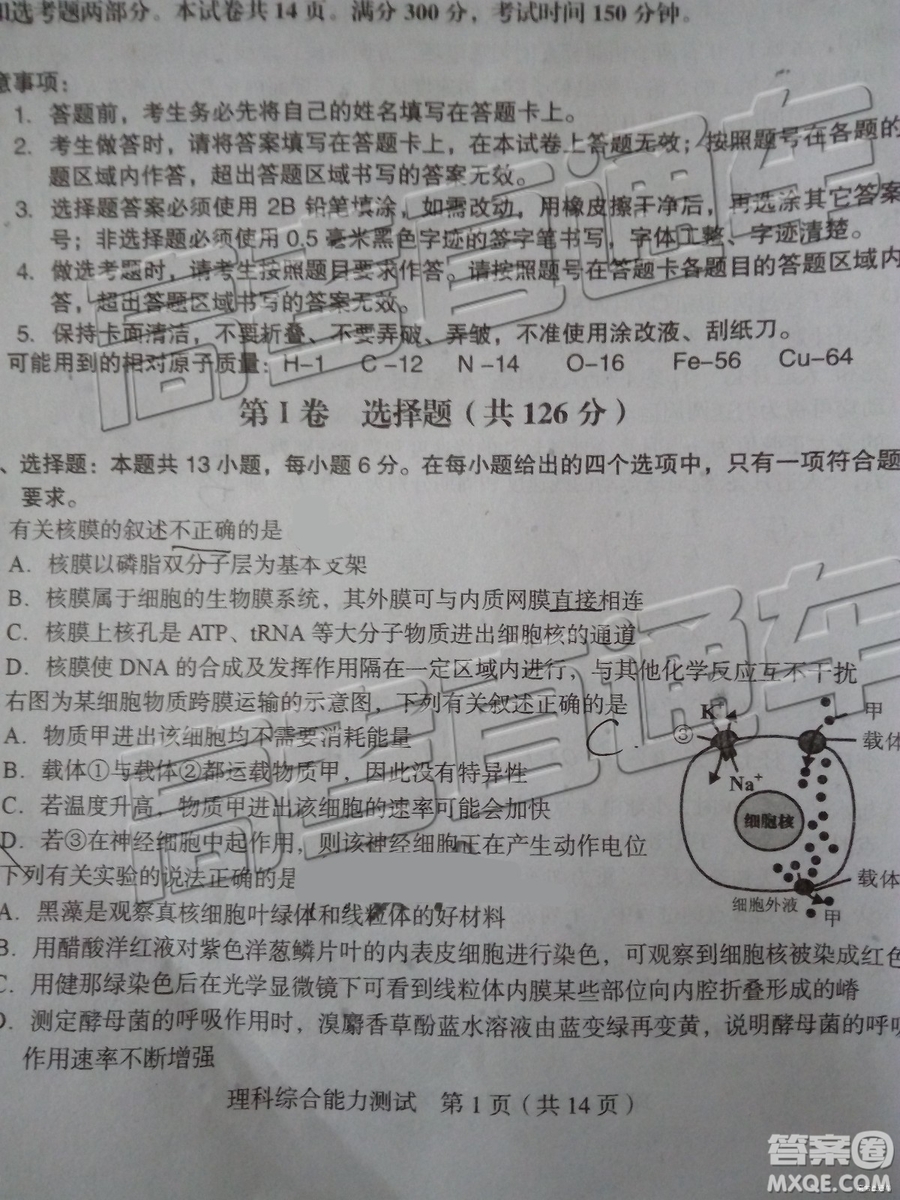 和选考题两部分。本试卷共14页。满分300分，考试时间150分钟。
意事项：
1. 答题前，考生务必先将自己的姓名填写在答题卡上。
2. 考生做答时，请将答案填写在答题卡上，在本试卷上答题无效；按照题号在各题的
题区域内作答，超出答题区域书写的答案无效。
3. 选择题答案必须使用2B铅笔填涂，如需改动，用橡皮擦干净后，再选涂其它答案
号；非选择题必须使用0.5毫米黑色字迹的签字笔书写，字体工整、字迹清楚。
4. 做选考题时，请考生按照题目要求作答。请按照题号在答题卡各题目的答题区域内
答，超出答题区域书写的答案无效。
5. 保持卡面清洁，不要折叠、不要弄破、弄皱，不准使用涂改液、刮纸刀。
可能用到的相对原子质量：H-1 C-12 N-14 O-16 Fe-56 Cu-64
第Ⅰ卷 选择题（共126分）
、选择题：本题共13小题，每小题6分。在每小题给出的四个选项中，只有一项符合题
要求。
有关核膜的叙述不正确的是
A. 核膜以磷脂双分子层为基本支架
B. 核膜属于细胞的生物膜系统，其外膜可与内质网膜直接相连
C. 核膜上核孔是ATP、tRNA等大分子物质进出细胞核的通道
D. 核膜使DNA的合成及发挥作用隔在一定区域内进行，与其他化学反应互不干扰
右图为某细胞物质跨膜运输的示意图，下列有关叙述正确的是
C.
A. 物质甲进出该细胞均不需要消耗能量
B. 载体①与载体②都运载物质甲，因此没有特异性
C. 若温度升高，物质甲进出该细胞的速率可能会加快
D. 若③在神经细胞中起作用，则该神经细胞正在产生动作电位
K⁺
③
Na⁺
甲
载体
细胞核
载体
细胞外液
甲
下列有关实验的说法正确的是
A. 黑藻是观察真核细胞叶绿体和线粒体的好材料
B. 用醋酸洋红液对紫色洋葱鳞片叶的内表皮细胞进行染色，可观察到细胞核被染成红色
C. 用健那绿染色后在光学显微镜下可看到线粒体内膜某些部位向内腔折叠形成的嵴
D. 测定酵母菌的呼吸作用时，溴麝香草酚蓝水溶液由蓝变绿再变黄，说明酵母菌的呼吸
作用速率不断增强
理科综合能力测试 第1页（共14页）
高考直通车
高考直通车
答案圈
MXQE.COM